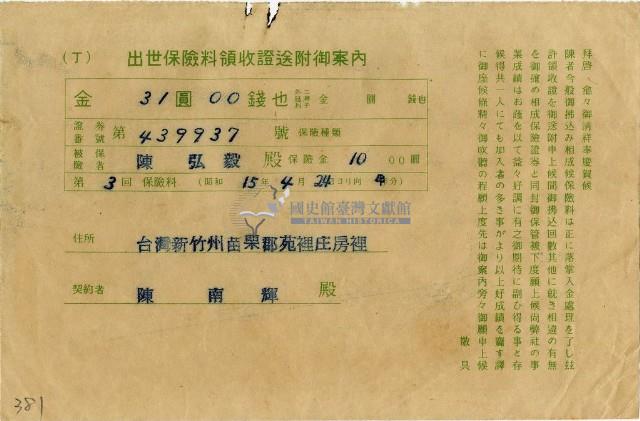 (丁) 出世保險料領收證送附御案內
金 31圓00錢也 金 圓 錢也
證券番號 第 439937 號 保險種類
被保險者 陳弘毅 殿 保險金 1000圓
第3回 保險料 (昭和 15年4月24日ヨリ向 年分)
國史館臺灣文獻館
TAIWAN HISTORICA
住所 台灣新竹州苗栗郡苑裡庄房裡
契約者 陳南輝 殿
拜啓、愈々御淸祥奉慶賀候
陳者今般御拂込み相成候保險料は正に落掌入金處理を了し玆
許領收證を御送附申上候間御拂込回數其他に就き相違の有無
を御確の相成保險證券と同封御保管被下度願上候尙弊社の事
業成績はお蔭を以て益々好調に有之御期待に副ひ得る事と存
候得共一人にても加入者の多き事がより以上好成績を齎す譯
に御座候條精々御吹聽の程願上度先は御案內旁々御願申上候
敬具
381